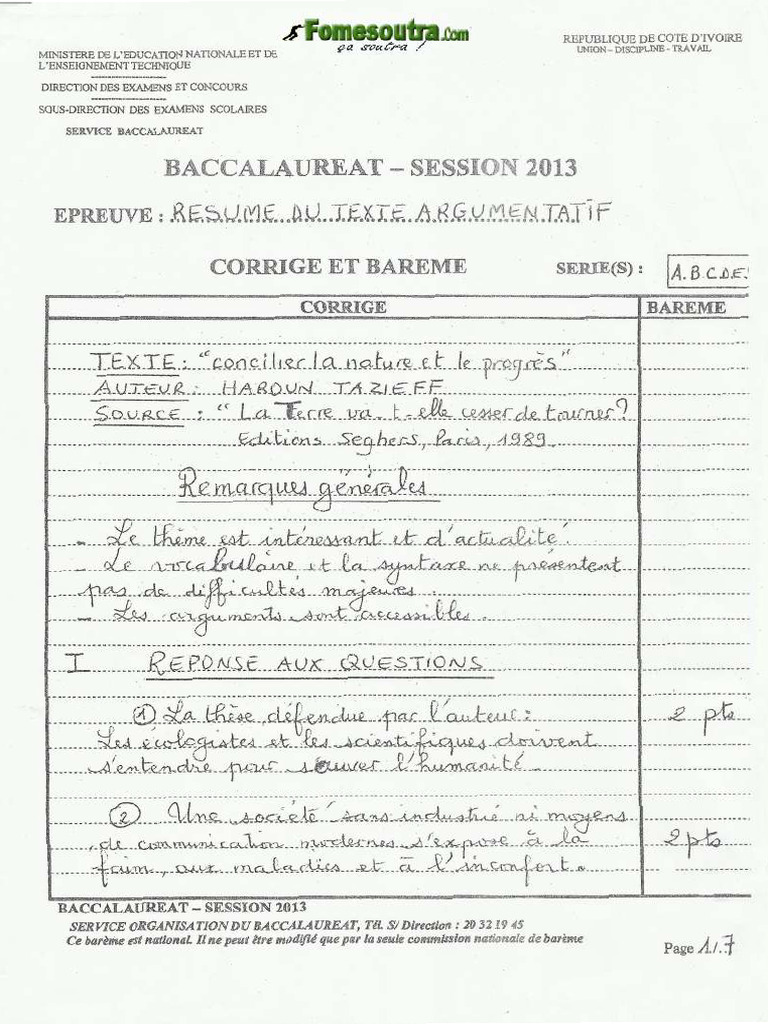 Fomesoutra.Com
ça soutra !
MINISTERE DE L'EDUCATION NATIONALE ET DE
L'ENSEIGNEMENT TECHNIQUE
DIRECTION DES EXAMENS ET CONCOURS
SOUS-DIRECTION DES EXAMENS SCOLAIRES
SERVICE BACCALAUREAT
REPUBLIQUE DE COTE D'IVOIRE
UNION – DISCIPLINE - TRAVAIL
BACCALAUREAT – SESSION 2013
EPREUVE : RESUME DU TEXTE ARGUMENTATIF
CORRIGE ET BAREME SERIE(S) : A.B.C.D.E.
CORRIGE BAREME
TEXTE : "concilier la nature et le progrès"
AUTEUR : HAROUN TAZIEFF
SOURCE : "La Terre va-t-elle cesser de tourner?
Editions Seghers, Paris, 1989
Remarques générales
- Le thème est intéressant et d'actualité.
- Le vocabulaire et la syntaxe ne présentent
pas de difficultés majeures.
- Les arguments sont accessibles.
I REPONSE AUX QUESTIONS
① La thèse défendue par l'auteur : 2 pts
Les écologistes et les scientifiques doivent
s'entendre pour sauver l'humanité
② Une société sans industrie ni moyens
de communication modernes s'expose à la 2 pts
faim, aux maladies et à l'inconfort.
BACCALAUREAT – SESSION 2013
SERVICE ORGANISATION DU BACCALAUREAT, Tél. S/ Direction : 20 32 19 45
Ce barème est national. Il ne peut être modifié que par la seule commission nationale de barème
Page 1/.7